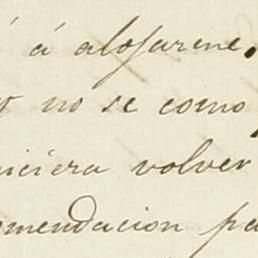 á alojarme.
no se como
iciera volver
mendacion pa